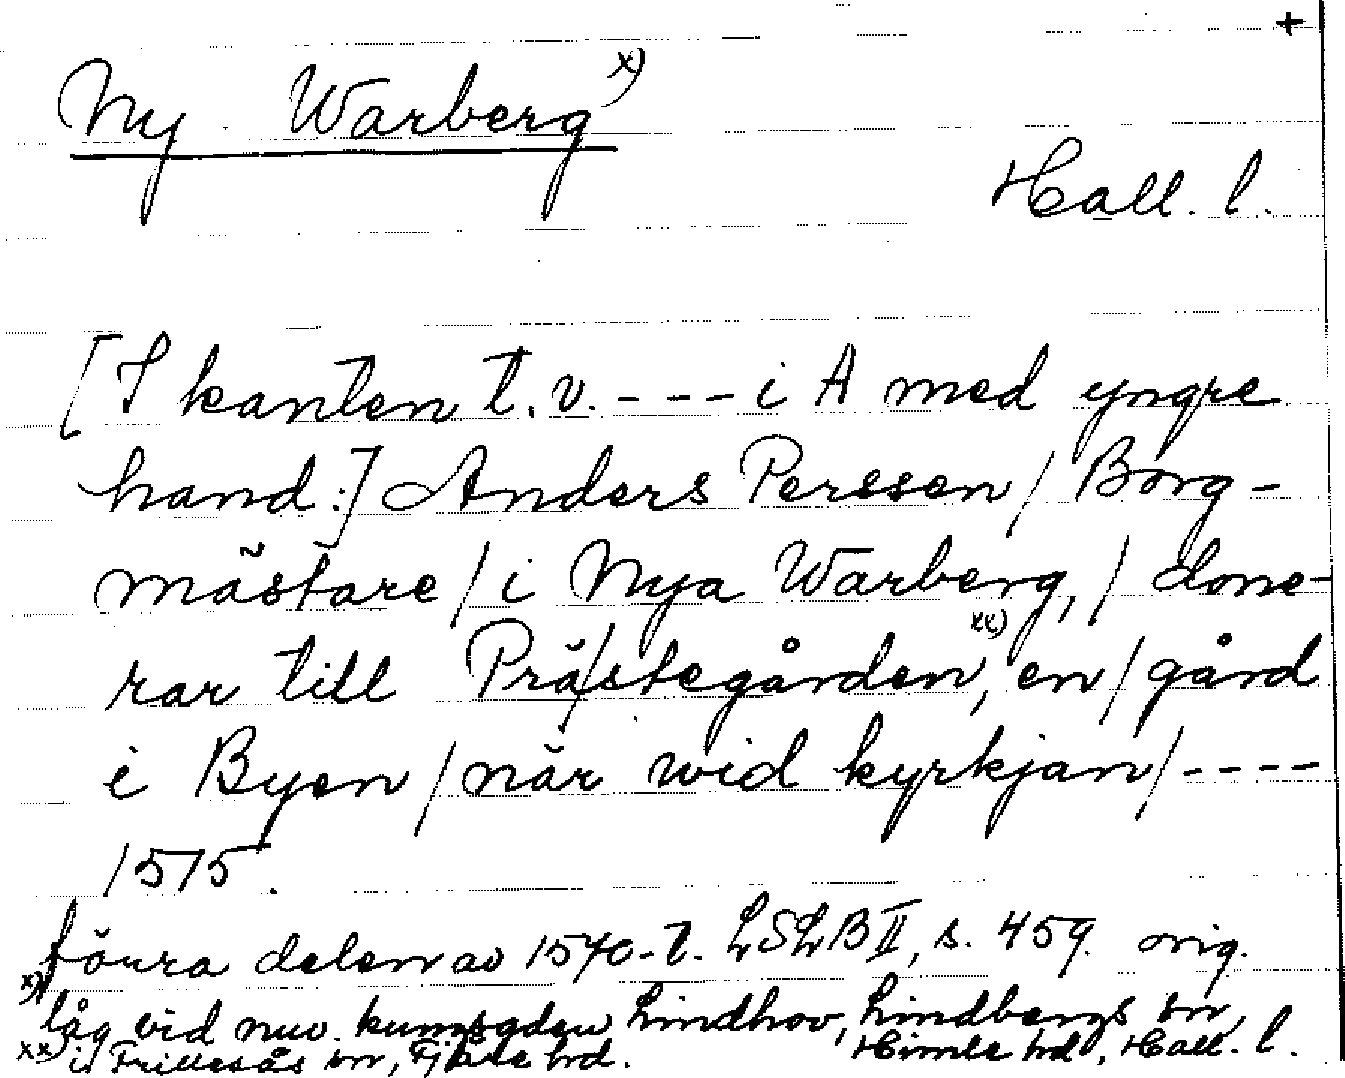 +
Ny Warberg x)
Hall. l.
[I kanten t. v. - - - i A med yngre
hand:] Anders Perssen / Borg-
mästare / i Nya Warberg, / done-
rar till Prä/stegården xx), en / gård
i Byen / när wid kyrkjan / - - - -
1575.
förra delen av 1570-t. LSLB II, s. 459. orig.
x) låg vid nuv. kungsgården Lindhov, Lindbergs sn,
Himle hd, Hall. l.
xx) i Frillesås sn, Fjäre hd.